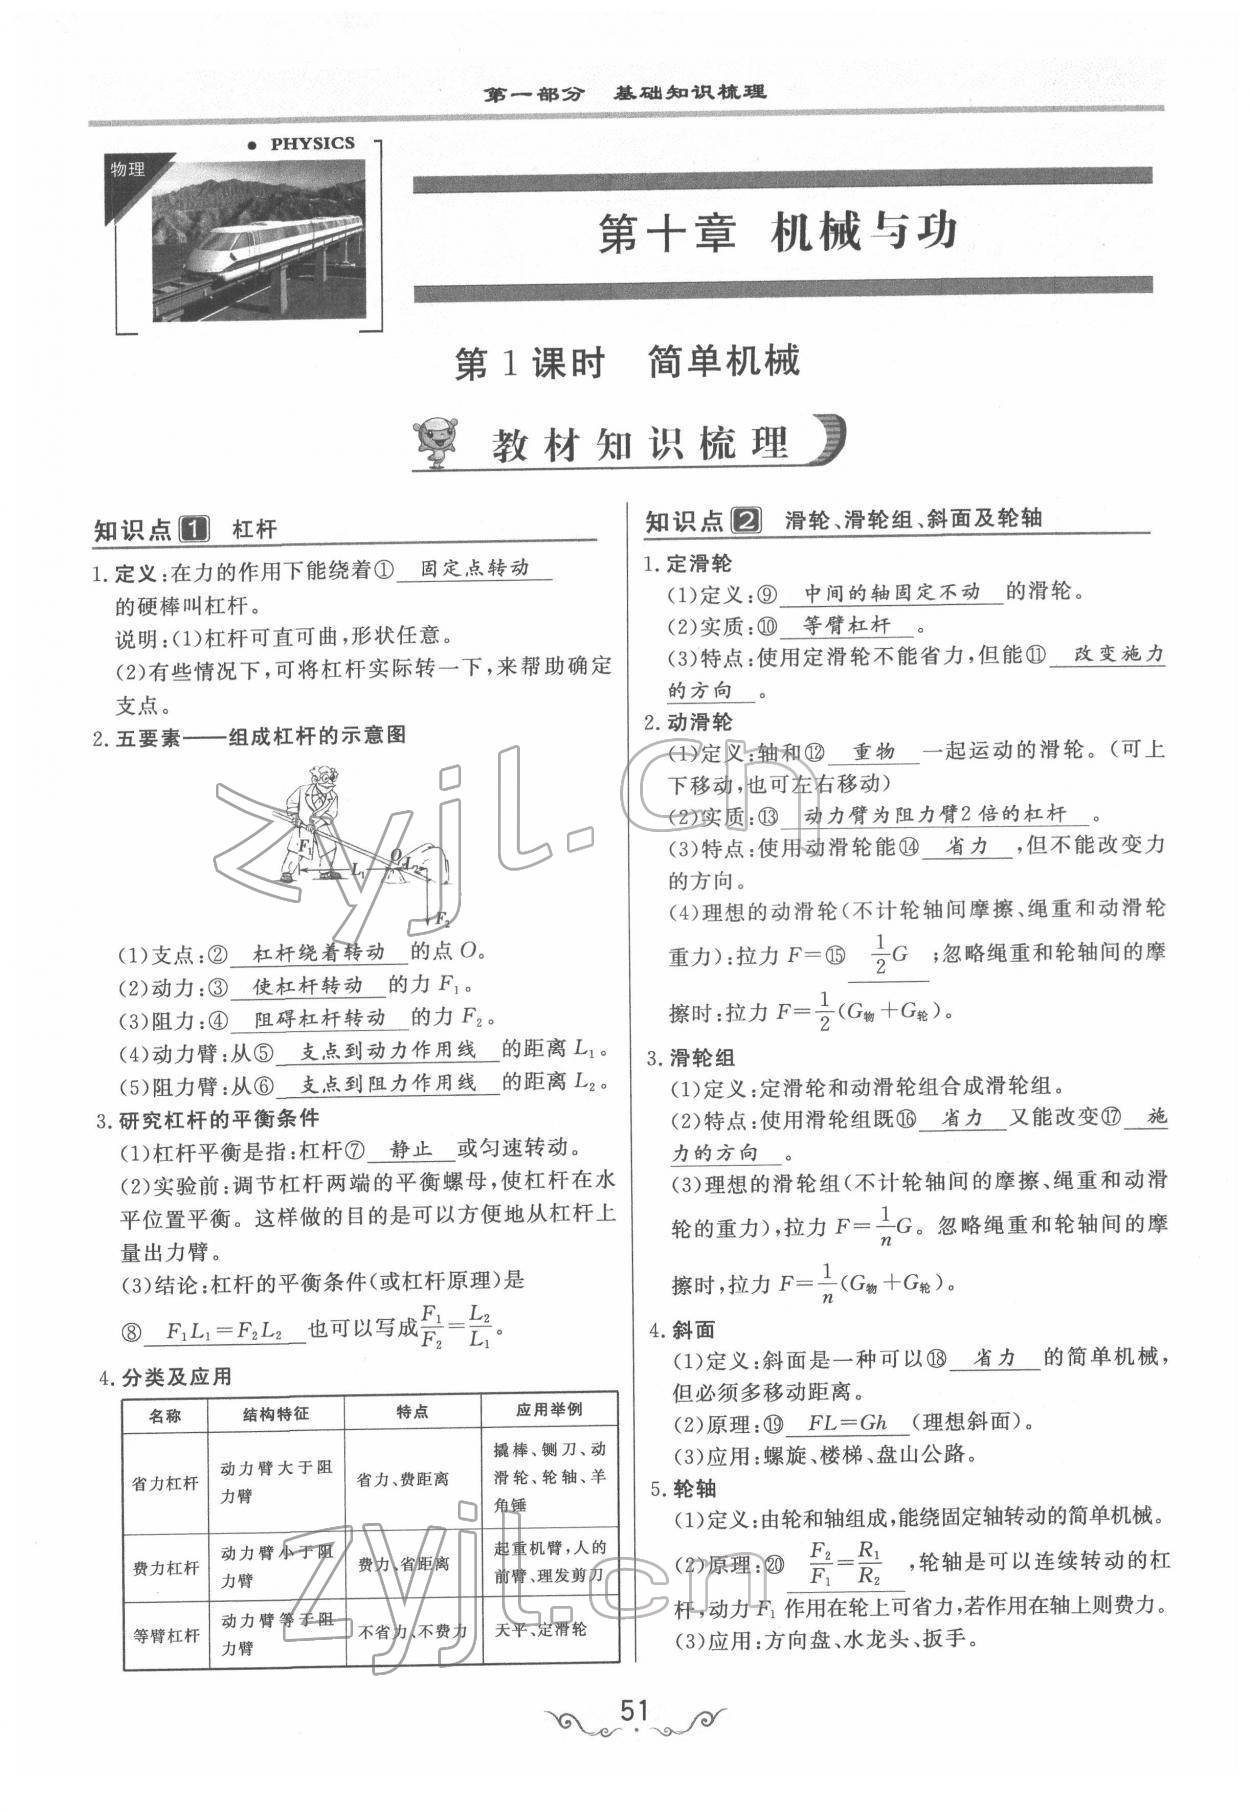 第一部分　基础知识梳理
• PHYSICS
物理
第十章 机械与功
第1课时　简单机械
教材知识梳理
知识点1　杠杆
1. 定义:在力的作用下能绕着① 固定点转动
的硬棒叫杠杆。
说明:(1)杠杆可直可曲,形状任意。
(2)有些情况下,可将杠杆实际转一下,来帮助确定
支点。
2. 五要素——组成杠杆的示意图
F₁ L₁ O L₂ F₂
(1)支点:② 杠杆绕着转动 的点 O。
(2)动力:③ 使杠杆转动 的力 F₁。
(3)阻力:④ 阻碍杠杆转动 的力 F₂。
(4)动力臂:从⑤ 支点到动力作用线 的距离 L₁。
(5)阻力臂:从⑥ 支点到阻力作用线 的距离 L₂。
3. 研究杠杆的平衡条件
(1)杠杆平衡是指:杠杆⑦ 静止 或匀速转动。
(2)实验前:调节杠杆两端的平衡螺母,使杠杆在水
平位置平衡。这样做的目的是可以方便地从杠杆上
量出力臂。
(3)结论:杠杆的平衡条件(或杠杆原理)是
⑧ F₁L₁=F₂L₂ 也可以写成F₁/F₂=L₂/L₁。
4. 分类及应用
名称 结构特征 特点 应用举例
省力杠杆 动力臂大于阻力臂 省力、费距离 撬棒、铡刀、动滑轮、轮轴、羊角锤
费力杠杆 动力臂小于阻力臂 费力、省距离 起重机臂,人的前臂、理发剪刀
等臂杠杆 动力臂等于阻力臂 不省力、不费力 天平、定滑轮
知识点2　滑轮、滑轮组、斜面及轮轴
1. 定滑轮
(1)定义:⑨ 中间的轴固定不动 的滑轮。
(2)实质:⑩ 等臂杠杆 。
(3)特点:使用定滑轮不能省力,但能⑪ 改变施力
的方向 。
2. 动滑轮
(1)定义:轴和⑫ 重物 一起运动的滑轮。(可上
下移动,也可左右移动)
(2)实质:⑬ 动力臂为阻力臂2倍的杠杆 。
(3)特点:使用动滑轮能⑭ 省力 ,但不能改变力
的方向。
(4)理想的动滑轮(不计轮轴间摩擦、绳重和动滑轮
重力):拉力 F=⑮ 1/2 G ;忽略绳重和轮轴间的摩
擦时:拉力 F=1/2(G物+G轮)。
3. 滑轮组
(1)定义:定滑轮和动滑轮组合成滑轮组。
(2)特点:使用滑轮组既⑯ 省力 又能改变⑰ 施
力的方向 。
(3)理想的滑轮组(不计轮轴间的摩擦、绳重和动滑
轮的重力),拉力 F=1/n G。忽略绳重和轮轴间的摩
擦时,拉力 F=1/n(G物+G轮)。
4. 斜面
(1)定义:斜面是一种可以⑱ 省力 的简单机械,
但必须多移动距离。
(2)原理:⑲ FL=Gh (理想斜面)。
(3)应用:螺旋、楼梯、盘山公路。
5. 轮轴
(1)定义:由轮和轴组成,能绕固定轴转动的简单机械。
(2)原理:⑳ F₂/F₁=R₁/R₂ ,轮轴是可以连续转动的杠
杆,动力 F₁ 作用在轮上可省力,若作用在轴上则费力。
(3)应用:方向盘、水龙头、扳手。
51
zyjl.cn
zyjl.cn